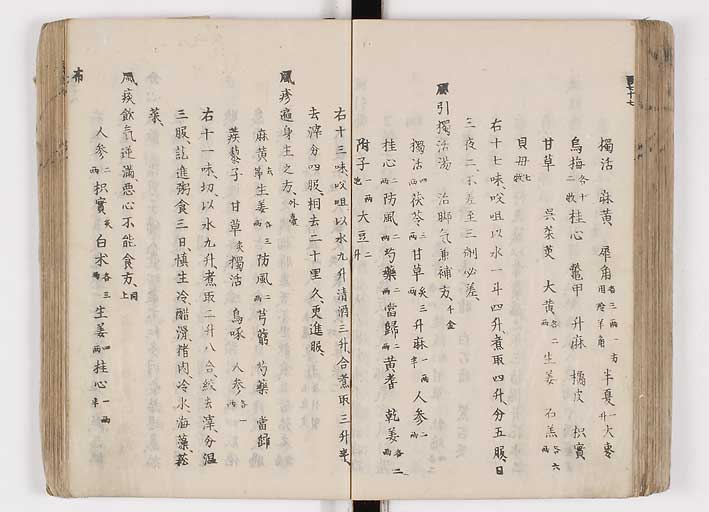 獨活 麻黃 犀角各三兩一方用羚羊角 半夏一升 大棗
烏梅各十二枚 桂心 鼈甲 升麻 橘皮 枳實
甘草 吳茱萸 大黃各二兩 生姜 石羔各六兩
貝母七枚
右十七味㕮咀以水一斗四升煮取四升分五服日
三夜二不差至三劑必差
風引獨活湯 治腳氣兼補方千金
獨活四兩 茯苓三兩 甘草炙三兩 升麻一兩半 人參二
桂心二兩 防風二兩 芍藥二兩 當歸二兩 黃耆 乾姜各二兩
附子一兩炮 大豆二升
右十三味㕮咀以水九升清酒三升合煮取三升半
去滓分四服相去二十里久更進服
風疹遍身生之方外臺
麻黃去節 生姜各三兩 防風二兩 芎藭 芍藥 當歸
蒺藜子 甘草炙 獨活 烏喙 人參各一兩
右十一味切以水九升煮取二升八合絞去滓分溫
三服訖進粥食三日慎生冷醋滑猪肉冷水海藻菘
菜
風痰飲氣逆滿惡心不能食方同上
人參二兩 枳實炙 白朮各三兩 生姜四兩 桂心一兩半
布